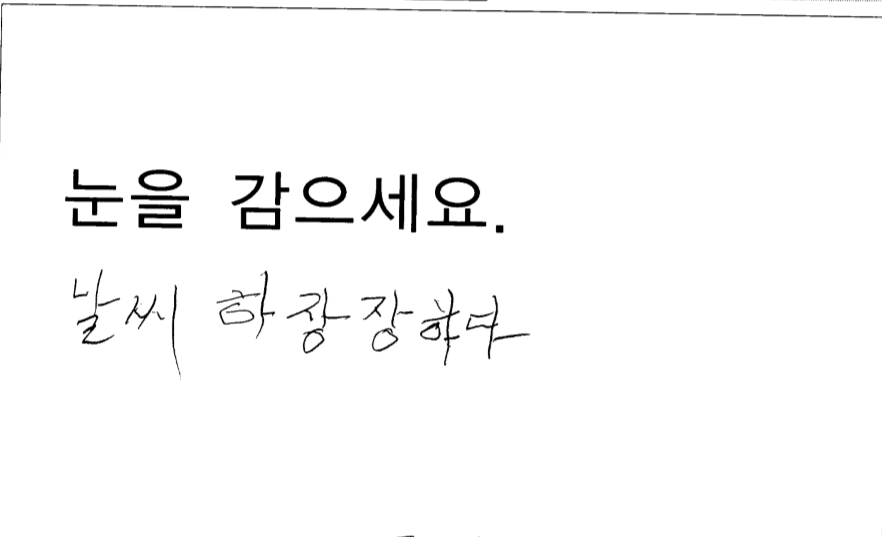 눈을 감으세요.
날씨 하장장하다